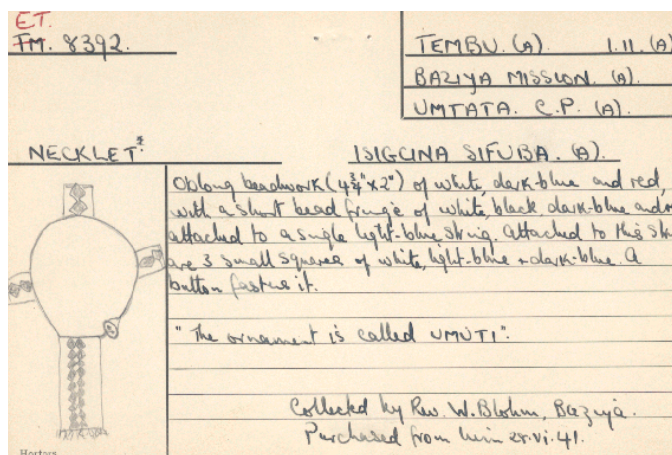 ET.
TM. 8392.
TEMBU. (A). 1.11. (A)
BAZIYA MISSION. (A).
UMTATA. C.P. (A).
NECKLET*:
ISIGCINA SIFUBA. (A).
Oblong beadwork (4¾" x 2") of white, dark-blue and red,
with a short bead fringe of white, black, dark-blue and
attached to a single light-blue string. Attached to this
are 3 small squares of white, light-blue + dark-blue. A
button fastens it.
"The ornament is called UMUTI".
Collected by Rev. W. Blohm, Baziya.
Purchased from him vi. 41.
Hortors